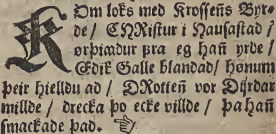 KOm loks med Krossens Byr-
de / CHRistur i Nausastad /
orþiadur þra eg hañ yrde /
Edik Galle blandad / hønum
þeir hielldu ad / DRotteñ vor Dijrdar
millde / drecka þo ecke villde / þa hañ
smackade þad.